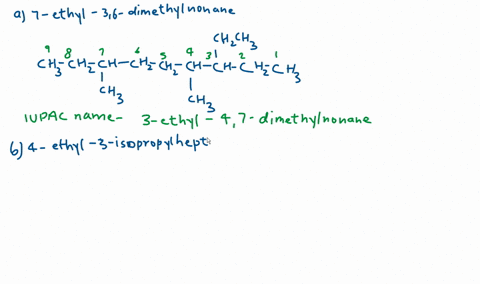 a) 7-ethyl-3,6-dimethylnonane
9 8 7 6 5 4 3 2 1
CH2CH3
CH3-CH2-CH-CH2-CH2-CH-CH-CH2-CH3
CH3 CH3
IUPAC name- 3-ethyl-4,7-dimethylnonane
b) 4-ethyl-3-isopropylhept